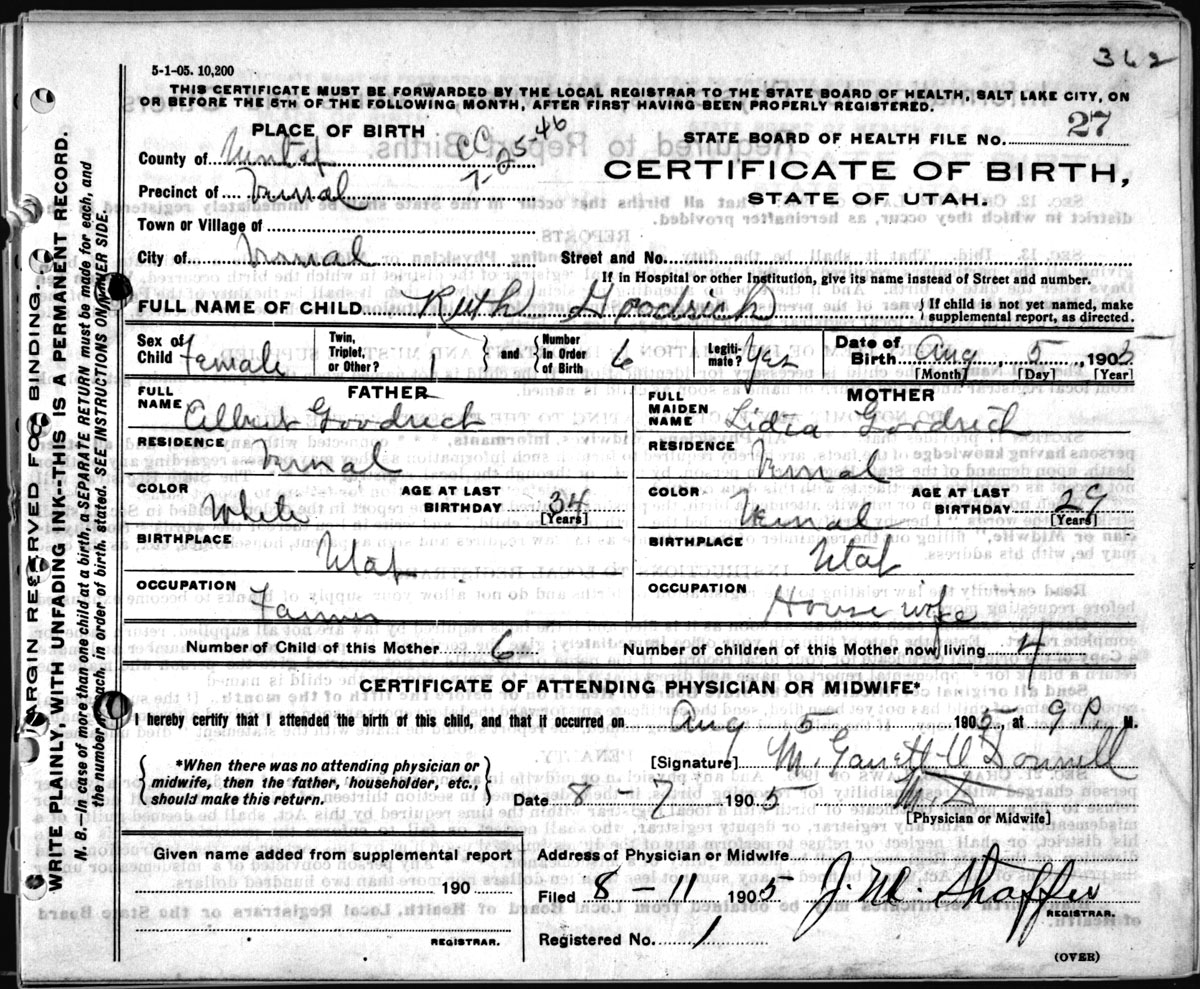 362
5-1-05. 10,200
THIS CERTIFICATE MUST BE FORWARDED BY THE LOCAL REGISTRAR TO THE STATE BOARD OF HEALTH, SALT LAKE CITY, ON
OR BEFORE THE 5TH OF THE FOLLOWING MONTH, AFTER FIRST HAVING BEEN PROPERLY REGISTERED.
PLACE OF BIRTH
CC 7-25-46
STATE BOARD OF HEALTH FILE NO. 27
County of Uintah
CERTIFICATE OF BIRTH,
Precinct of Vernal
STATE OF UTAH.
Town or Village of
City of Vernal Street and No.
If in Hospital or other Institution, give its name instead of Street and number.
FULL NAME OF CHILD Ruth Goodrich { If child is not yet named, make supplemental report, as directed.
Sex of Child Female Twin, Triplet, or Other? 1 } and { Number in Order of Birth 6 Legiti-mate? Yes Date of Birth Aug 5 1905
[Month] [Day] [Year]
FATHER
FULL NAME Albert Goodrich
RESIDENCE Vernal
COLOR White AGE AT LAST BIRTHDAY 34 [Years]
BIRTHPLACE Utah
OCCUPATION Farmer
MOTHER
FULL MAIDEN NAME Lidia Goodrich
RESIDENCE Vernal
COLOR Vernal AGE AT LAST BIRTHDAY 29 [Years]
BIRTHPLACE Utah
OCCUPATION House wife
Number of Child of this Mother 6 Number of children of this Mother now living 4
CERTIFICATE OF ATTENDING PHYSICIAN OR MIDWIFE*
I hereby certify that I attended the birth of this child, and that it occurred on Aug 5 1905, at 9 P M.
{ *When there was no attending physician or midwife, then the father, householder, etc., should make this return. }
[Signature] M.
Date 8-7 1905 M.D.
[Physician or Midwife]
Given name added from supplemental report
190
REGISTRAR.
Address of Physician or Midwife
Filed 8-11 1905 J. M. Shaffer
REGISTRAR.
Registered No. 1
(OVER)
MARGIN RESERVED FOR BINDING.
WRITE PLAINLY WITH UNFADING INK--THIS IS A PERMANENT RECORD.
N. B.--In case of more than one child at a birth, a SEPARATE RETURN must be made for each, and
the number of each, in order of birth, stated. SEE INSTRUCTIONS ON OTHER SIDE.